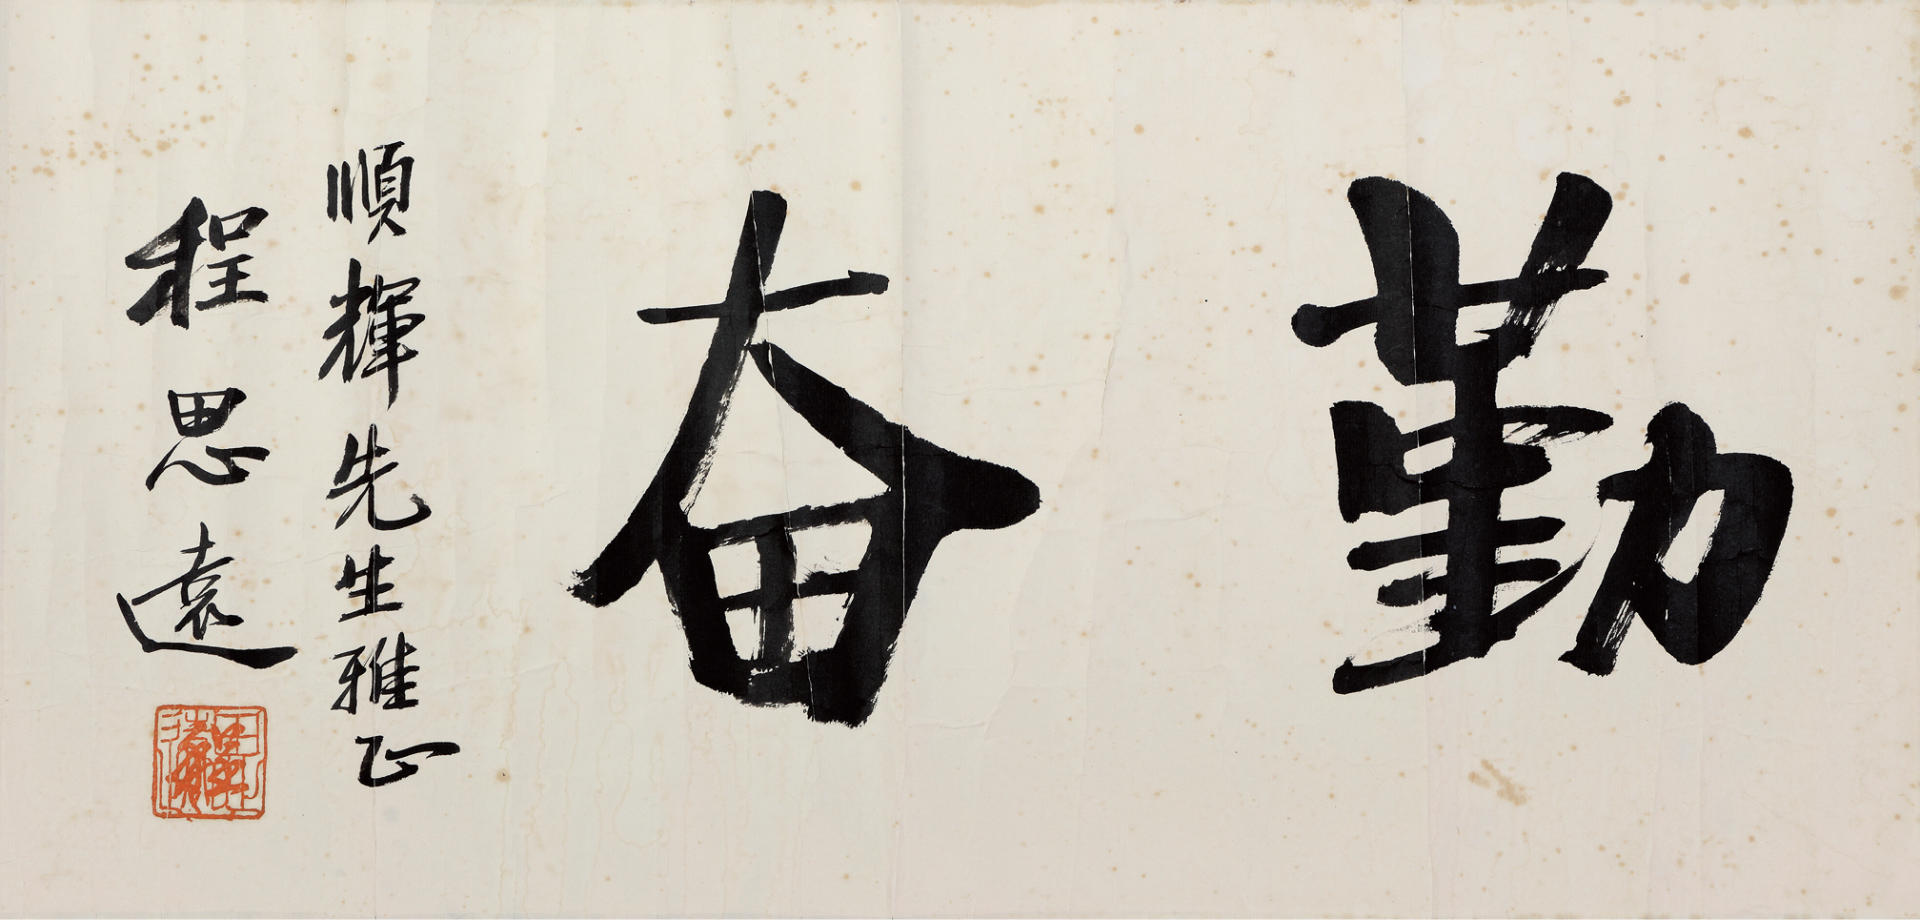 勤奋
順輝先生雅正
程思遠